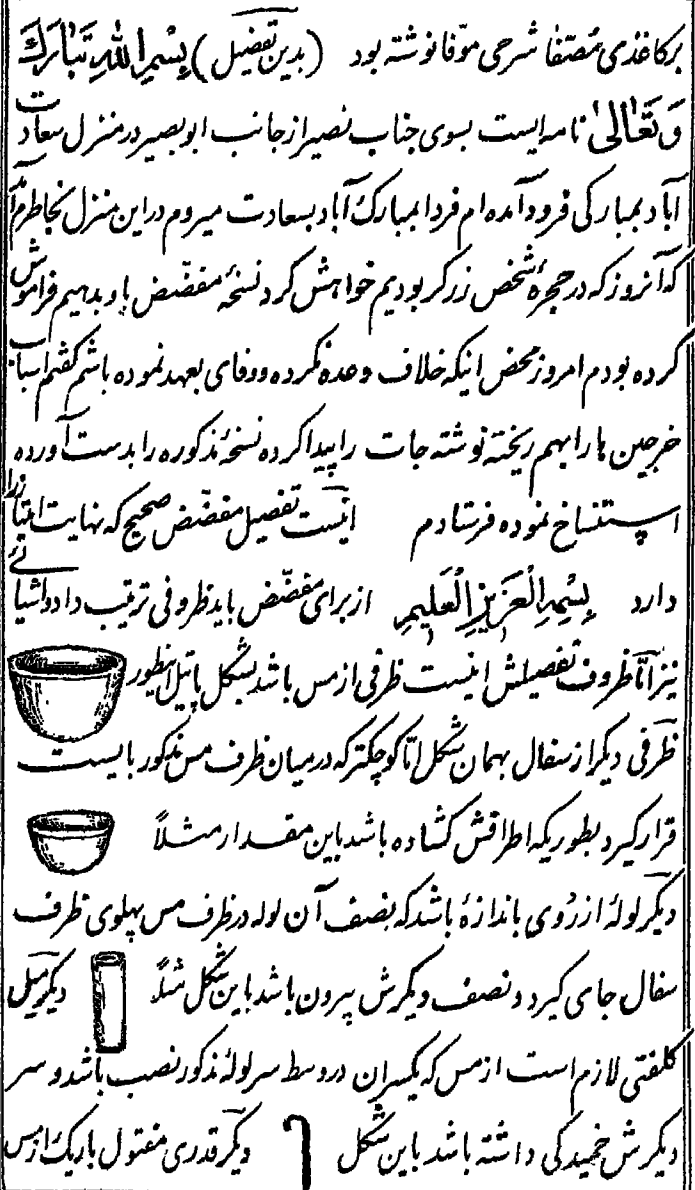 برکاغذی مُصَفّا شرحی موّفا نوشته بود (بدین تفضیل) بِسْمِ اللّٰهِ تَبٰارَکَ
وَتَعٰالیٰ نامه ایست بسوی جناب نصیر از جانب ابوبصیر در منزل سعادت
آباد بمبارکی فرود آمده ام فردا بمبارک آباد بسعادت میروم در این منزل بخاطرم آمد
که آنروز که در حجرهٔ شخص زرکر بودیم خواهش کرد نسخهٔ مفضّض باو بدهیم فراموش
کرده بودم امروز محض اینکه خلاف وعده نکرده ووفای بعهد نموده باشم کفتم اسباب
خرجین ها را بهم ریخته نوشته جات را پیدا کرده نسخهٔ مذکوره را بدست آورده
استنساخ نموده فرستادم اینست تفصیل مفضّض صحیح که نهایت امتیاز را
دارد بِسْمِ الْعَزیزِ الْعَلیمِ از برای مفضّض باید ظروفی ترتیب داد واشیائے
نیز امّا ظروف تفصیلش اینست ظرفی از مس باشد بشکل پاتیل اینطور
ظرفی دیکر از سفال بهمان شکل امّا کوچکتر که در میان ظرف مس مذکور بایست
قرار کیرد بطوریکه اطرافش کشاده باشد باین مقدار مثلاً
دیکر لولهٔ از رُوی باندازهٔ باشد که نصف آن لوله در ظرف مس پهلوی ظرف
سفال جای کیرد و نصف دیکرش بیرون باشد باین شکل مثلاً دیکر میل
کلفتی لازم است از مس که یکسر ان در وسط سر لولهٔ مذکور نصب باشد و سر
دیکرش خمیدکی داشته باشد باین شکل دیکر قدری مفتول باریک از مس